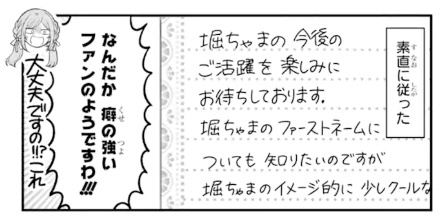 素直に従った
堀ちゃまの 今後の
ご活躍を 楽しみに
お待ちしております.
堀ちゃまの ファーストネームに
ついても 知りたいのですが
堀ちゃまのイメージ的に 少しクールな
なんだか 癖の強い
ファンのようですわ!!!
大丈夫ですの!!?これ